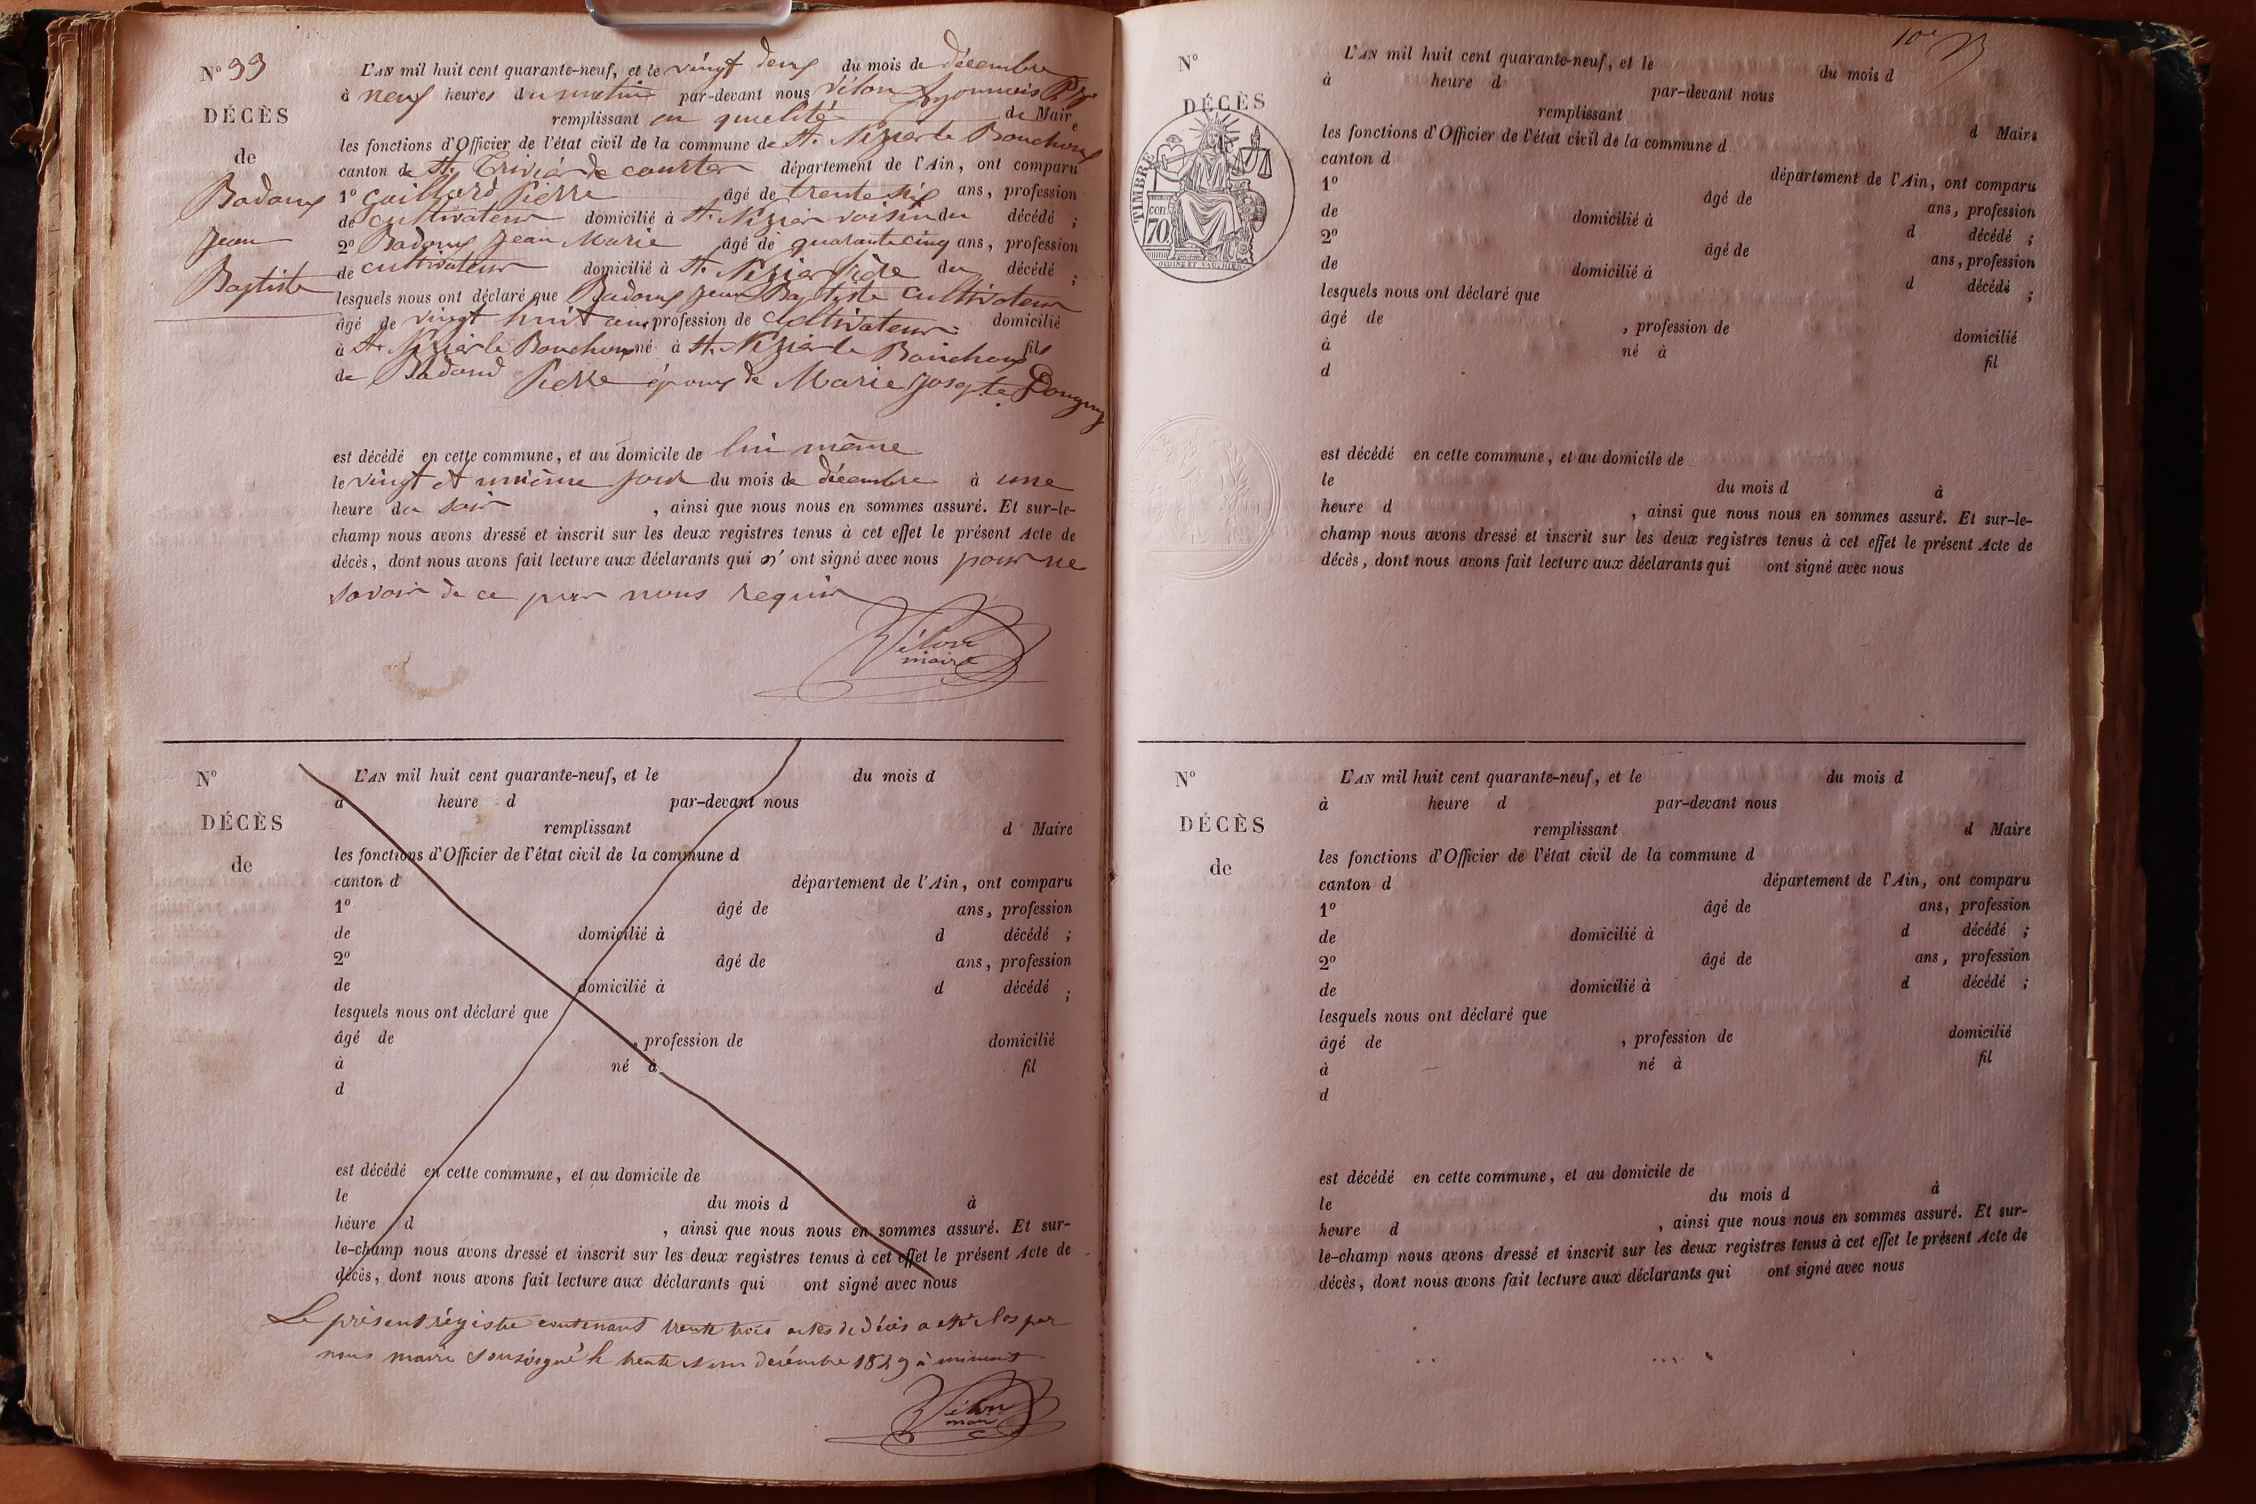 N° 33
DÉCÈS
de
Badoux
Jean
Baptiste
L'AN mil huit cent quarante-neuf, et le vingt deux du mois de décembre
à neuf heures du matin par-devant nous Vélon
remplissant en qualité de Maire
les fonctions d'Officier de l'état civil de la commune de St. Nizier le Bouchoux
canton de St. Trivier de courtes département de l'Ain, ont comparu
1° Gaillard Pierre âgé de trente six ans, profession
de cultivateur domicilié à St. Nizier voisin du décédé ;
2° Badoux Jean Marie âgé de quarante cinq ans, profession
de cultivateur domicilié à St. Nizier du décédé ;
lesquels nous ont déclaré que Badoux Jean Baptiste cultivateur
âgé de vingt huit ans profession de cultivateur domicilié
à St. Nizier le Bouchoux né à St. Nizier le Bouchoux fils
de Badoud Pierre époux de Marie Josepte
est décédé en cette commune, et au domicile de lui même
le vingt et unième jour du mois de décembre à une
heure du soir , ainsi que nous nous en sommes assuré. Et sur-le-
champ nous avons dressé et inscrit sur les deux registres tenus à cet effet le présent Acte de
décès, dont nous avons fait lecture aux déclarants qui n' ont signé avec nous pour ne
savoir de ce par nous requis
Vélon
maire
N°
DÉCÈS
de
L'AN mil huit cent quarante-neuf, et le du mois d
à heure d par-devant nous
remplissant d Maire
les fonctions d'Officier de l'état civil de la commune d
canton d département de l'Ain, ont comparu
1° âgé de ans, profession
de domicilié à d décédé ;
2° âgé de ans, profession
de domicilié à d décédé ;
lesquels nous ont déclaré que
âgé de , profession de domicilié
à né à fil
d
est décédé en cette commune, et au domicile de
le du mois d à
heure d , ainsi que nous nous en sommes assuré. Et sur-
le-champ nous avons dressé et inscrit sur les deux registres tenus à cet effet le présent Acte de
décès, dont nous avons fait lecture aux déclarants qui ont signé avec nous
Le présent régistre contenant trente trois actes de décès a été clos par
nous maire soussigné le trente et un décembre 1849 à minuit
Vélon
maire
N°
DÉCÈS
TIMBRE
70
L'AN mil huit cent quarante-neuf, et le du mois d
à heure d par-devant nous
remplissant d Maire
les fonctions d'Officier de l'état civil de la commune d
canton d département de l'Ain, ont comparu
1° âgé de ans, profession
de domicilié à d décédé ;
2° âgé de ans, profession
de domicilié à d décédé ;
lesquels nous ont déclaré que
âgé de , profession de domicilié
à né à fil
d
est décédé en cette commune, et au domicile de
le du mois d à
heure d , ainsi que nous nous en sommes assuré. Et sur-le-
champ nous avons dressé et inscrit sur les deux registres tenus à cet effet le présent Acte de
décès, dont nous avons fait lecture aux déclarants qui ont signé avec nous
N°
DÉCÈS
de
L'AN mil huit cent quarante-neuf, et le du mois d
à heure d par-devant nous
remplissant d Maire
les fonctions d'Officier de l'état civil de la commune d
canton d département de l'Ain, ont comparu
1° âgé de ans, profession
de domicilié à d décédé ;
2° âgé de ans, profession
de domicilié à d décédé ;
lesquels nous ont déclaré que
âgé de , profession de domicilié
à né à fil
d
est décédé en cette commune, et au domicile de
le du mois d à
heure d , ainsi que nous nous en sommes assuré. Et sur-
le-champ nous avons dressé et inscrit sur les deux registres tenus à cet effet le présent Acte de
décès, dont nous avons fait lecture aux déclarants qui ont signé avec nous